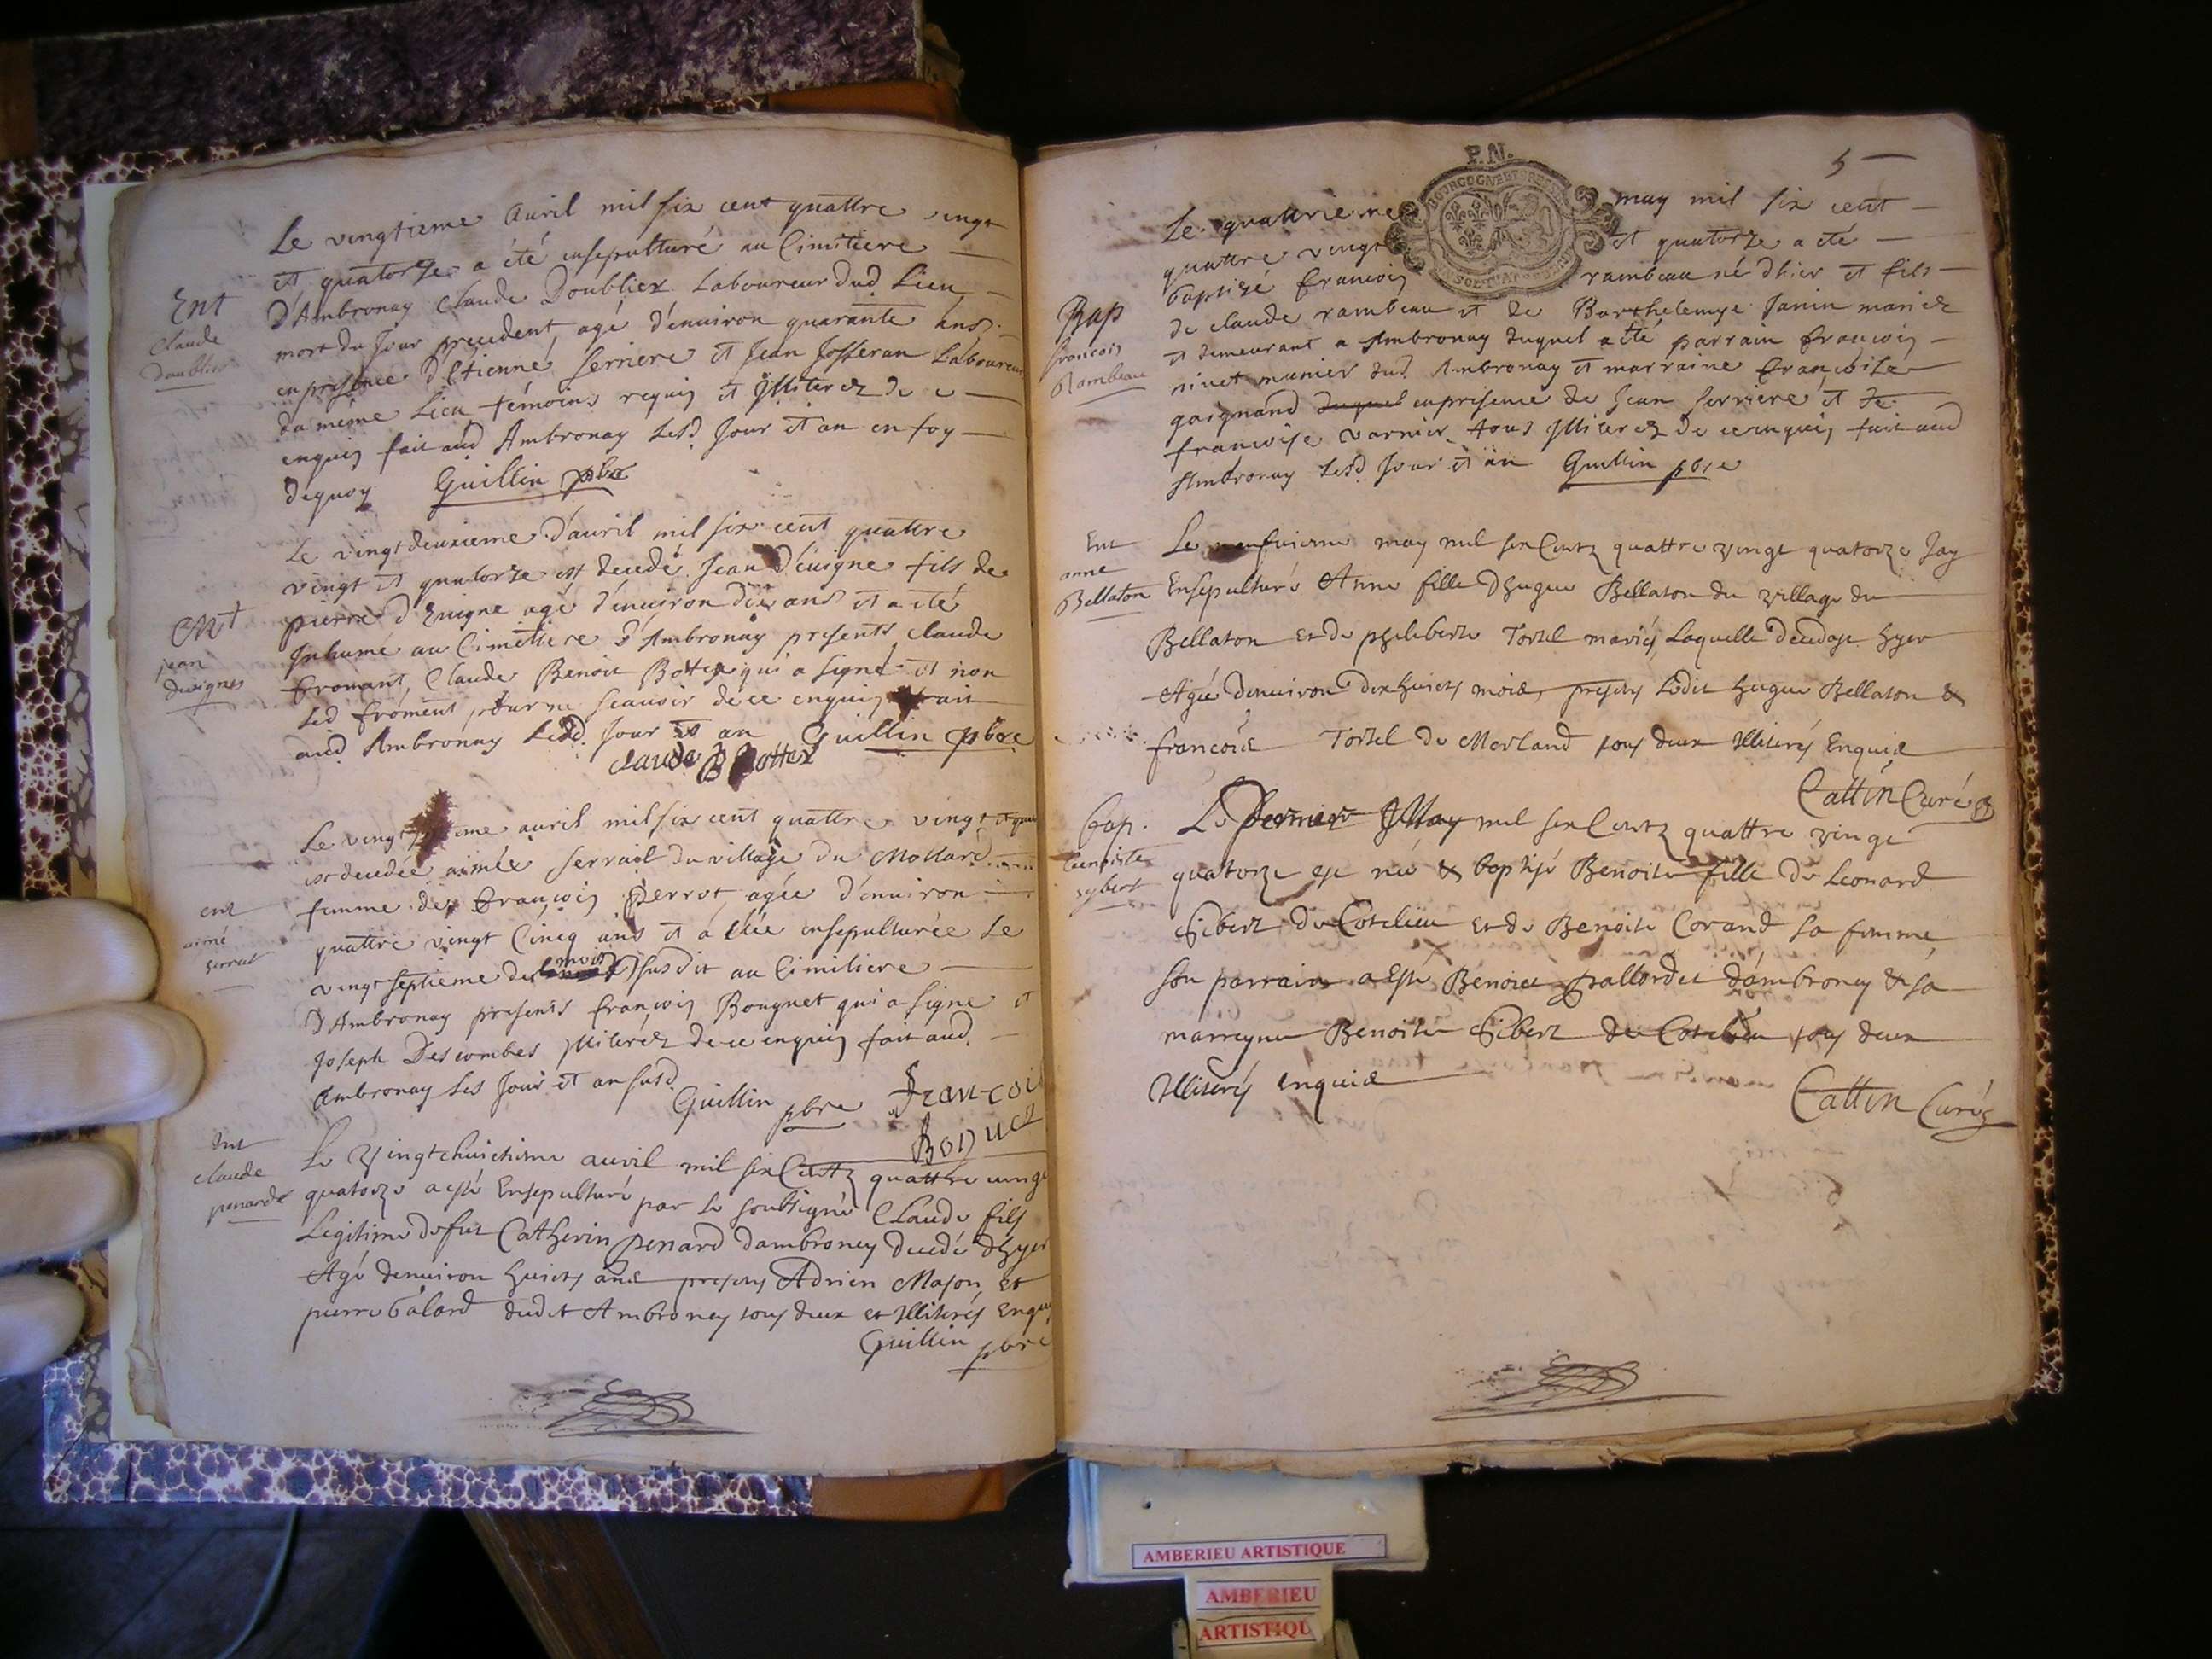 Le vingtieme auril mil six cent quattre vingt
et quatorze a été ensepulturé au Cimitiere
Ent
claude
Doublier
D'Ambronay Claude Doublier Laboureur dud Lieu
mort du Jour precedent, agé d'enuiron quarante ans
en presence d'Etienne serriere et Jean Josseran Laboureur
du méme Lieu témoins requis et Jlliterez de ce
enquis fait aud Ambronay Lesd Jour et an en foy
dequoy Guillin pbre
Le vingt deuxieme d'auril mil six cent quattre
vingt et quatorze est decedé Jean d'Euigne fils de
Ent
jean
duignes
pierre d'Euigne agé d'enuiron dix ans et a été
Jnhumé au Cimetiere d'Ambronay presents claude
fromant, Claude Benoit Botex qui a signé et non
Led froment pour ne scauoir de ce enquis fait
aud Ambronay Lesd Jour et an Guillin pbre
claude B Bottex
Le vingt ime auril mil six cent quattre vingt et
est decedée aimée serraid du village du Mollard
ent
aimé
serrait
femme de françois perrot, agée d'enuiron
quattre vingt Cincq ans et a étée ensepulturée Le
vingt septieme du mois susdit au Cimitiere
D'Ambronay presents françois Bougnet qui a signé et
Joseph Descombes Jlliterez de ce enquis fait aud
Ambronay Les Jour et an susd
Guillin pbre francoi
Ent
claude
penard
Le Vingthuictieme auril mil six Centz quattre vingt
quatorze a esté Ensepulturé par Le soubsigné Claude fils
Legitime de feu Catherin penard dambroney decedé dhyer
Agé denuiron huicts ans presents Adrien Mason et
pierre Galard dudit Ambroney tous deux et Illiterés
Guillin pbre
P.N.
5
Le quattrieme may mil six cent
quattre vingt et quatorze a été
Bap
francois
Rambeau
baptizé francois rambeau né d'hier et fils
de claude rambeau et de Barthelemye Janin mariez
et demeurant a Ambronay duquel a été parrain francois
niuet munier dud. Ambronay et marraine francoise
gaignand duquel en presence de Jean serriere et de
francoise varnier tous Jlliterez de ce enquis fait aud
Ambronay Lesd Jour et an Guillin pbre
Ent
anne
Bellaton
Le neufuieme may mil six Centz quattre vingt quatorze Jay
Ensepulturé Anne fille d'hugue Bellaton du village du
Bellaton et de philiberte Tortel mariés, Laquelle deceda hyer
Agée denuiron dix huicts mois, presents Ledit hugue Bellaton &
francois Tortel de Morland tous deux Illiterés Enquis
Cattin Curé
Bap.
benoiste
sybert
Le Dernier May mil six Centz quattre vingt
quatorze est née & baptisé Benoite fille de Leonard
Sibert du Cotelieu et de Benoite Corand sa femme
son parrain a esté Benoict dambroney & sa
marreyne Benoite Sibert de Cotelieu tous deux
Illiterés Enquis
Cattin Curé
AMBERIEU ARTISTIQUE
AMBERIEU
ARTISTIQU